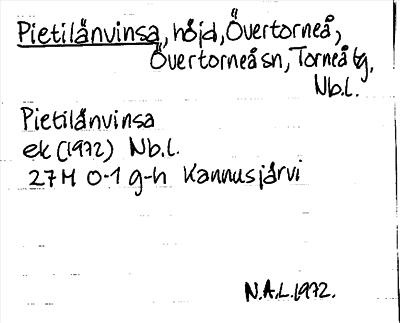 Pietilånvinsa, höjd, Övertorneå,
Övertorneå sn, Torneå tg,
Nb.l.
Pietilånvinsa
ek (1972) Nb.l.
27M 0-1 g-h Kannusjärvi
N.A.L. 1972.